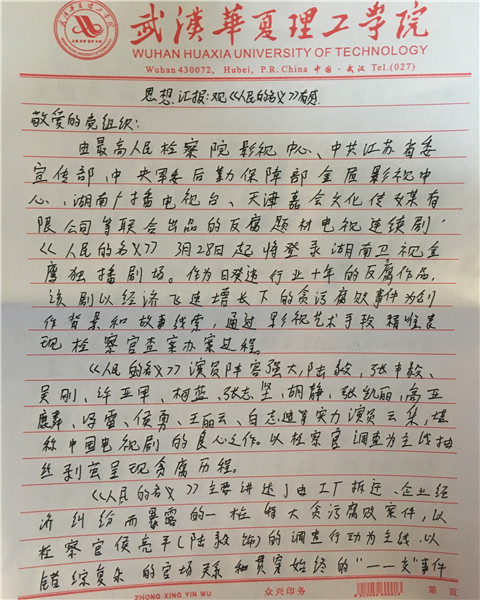 武漢華夏理工学院
WUHAN HUAXIA UNIVERSITY OF TECHNOLOGY
Wuhan 430072, Hubei, P.R. China 中国·武汉 Tel.(027)
思想汇报:观《人民的名义》有感
敬爱的党组织:
由最高人民检察院影视中心、中共江苏省委
宣传部、中央军委后勤保障部金盾影视中
心、湖南广播电视台、天津嘉会文化传媒有
限公司等联合出品的反腐题材电视连续剧
《人民的名义》3月28日起将登录湖南卫视金
鹰独播剧场。作为 行业十年的反腐作品,
该剧以经济飞速增长下的贪污腐败事件为创
作背景和故事线索,通过影视艺术手段精准表
现检察官查案办案过程。
《人民的名义》演员阵容强大,陆毅,张丰毅、
吴刚、许亚军、柯蓝、张志坚、胡静、张凯丽、高亚
麟、冯雷、侯勇、王丽云、白志迪等实力演员云集,堪
称中国电视剧的良心之作。以检察官调查为主线抽
丝剥茧呈现贪腐历程。
《人民的名义》主要讲述了由工厂拆迁、企业经
济纠纷而暴露的一桩特大贪污腐败案件,以
检察官侯亮平(陆毅饰)的调查行动为主线,以
错综复杂的官场关系和贯穿始终的"一一六"事件
ZHONG XING YIN WU 众兴印务 第 页